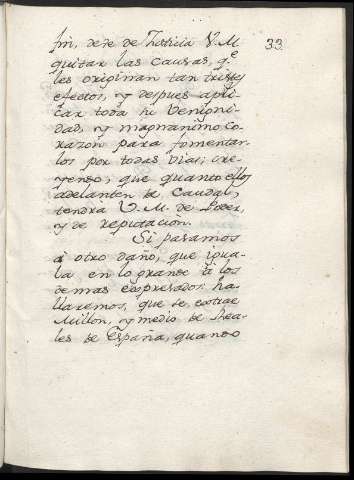 fin, deve de Justicia V. M. 33
quitar las causas, q.e
les originan tan tristes
efectos, y despues apli-
car toda su Benigni-
dad, y magnanimo co-
razon para fomentar-
los por todas vias; cre-
yendo; que quanto ellos
adelanten de caudal,
tendrà V. M. de Poder,
y de reputacion.
Si pasamos
à otro daño, que igua-
la en lo grande à los
demas expresados: ha-
llaremos, que se extrae
Millon, y medio de Rea-
les de España, quando